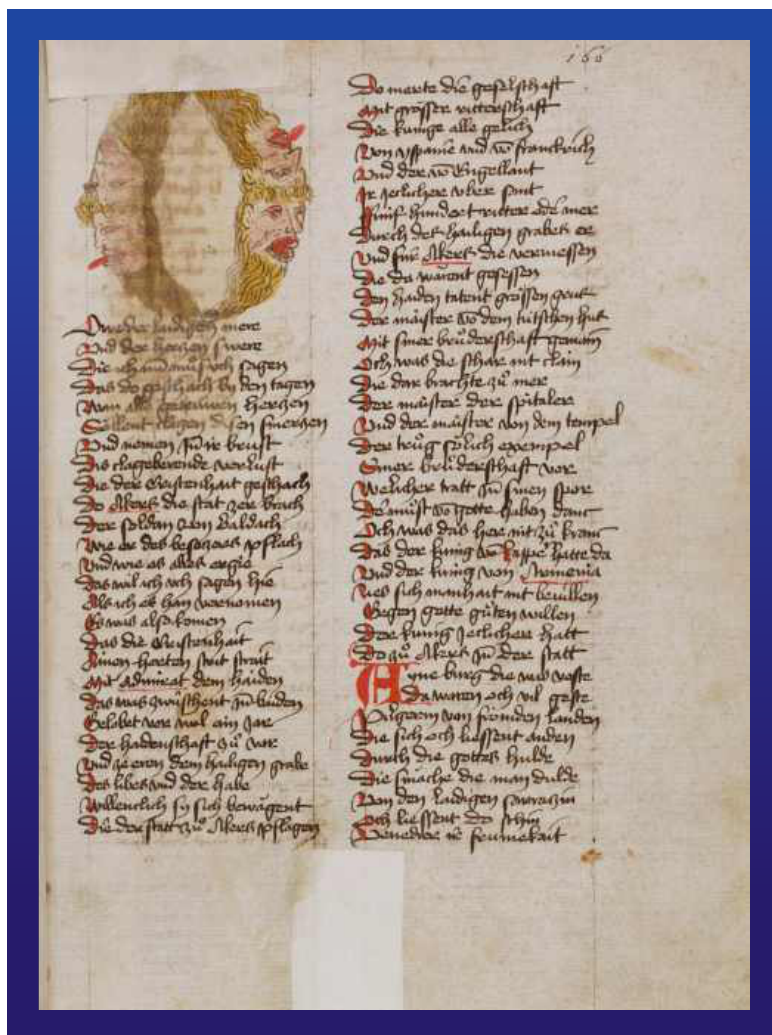 166
Owe der laidigen mere
Und der herczen swere
Die ich und muͦs uch sagen
Das do geschach by den tagen
Wan alle getruwen herczen
Soͤllent clagen disen smerczen
Und nemen Jn ir brust
Dis clagebernde verlust
Die der Cristenhait geschach
Do Akers die stat zer brach
Der soldan von Baldach
Wie er des besaczes pflach
Und wie es alles ergie
Das wil ich uch sagen hie
Als ich es han vernomen
Es was also komen
Das die Cristenhait
Ainen herten strit strait
Mit admirat dem haiden
Das was zwuͤschent Jn baiden
Gelobet vor wol ain Jar
Der haidenschaft zuͦ var
Und ze eren dem hailigen grabe
Des libes und der habe
Willenclich sy sich bewaͤgent
Die der statt zuͦ Akers pflagen
Do merte die geselschaft
Mit grosser ritterschaft
Die kunige alle gelich
Von yspanie und vō franckrich
Und der vō Engellant
Ir Jeclicher uber sant
Funf hundert ritter oder mer
Durch des hailigen grabes er
Und fuͤr Akers die vermessen
Die da warent gesessen
Den haiden tatent grossen
Der maister vō dem tutschen hus
Mit siner bruͦderschaft gemain
Och was die schar nit clain
Die dar brachte zuͦ mer
Der maister der spitaler
Und der maister von dem tempel
Der truͦg soͤlich exempel
Siner bruͦderschaft vor
Welicher tratt Jn sinen spor
Der muͦst vō gotte haben danc
Och was das her nit zuͦ kranc
Das der kunig vō kapper hatte da
Und der kunig von Armenia
Lies sich manhait nit bevillen
Gegen gotte guͦten willen
Der kunig Jeclicher hatt
Do zuͦ Akers Jn der statt
Ayne burg die was veste
Da waren och vil geste
Pilgerin von froͤmden landen
Die sich och liessent anden
Durch die gottes hulde
Die smache die man dulde
Von den laidigen sarrazin
Och liessent do schin
Venedier ir frumekait